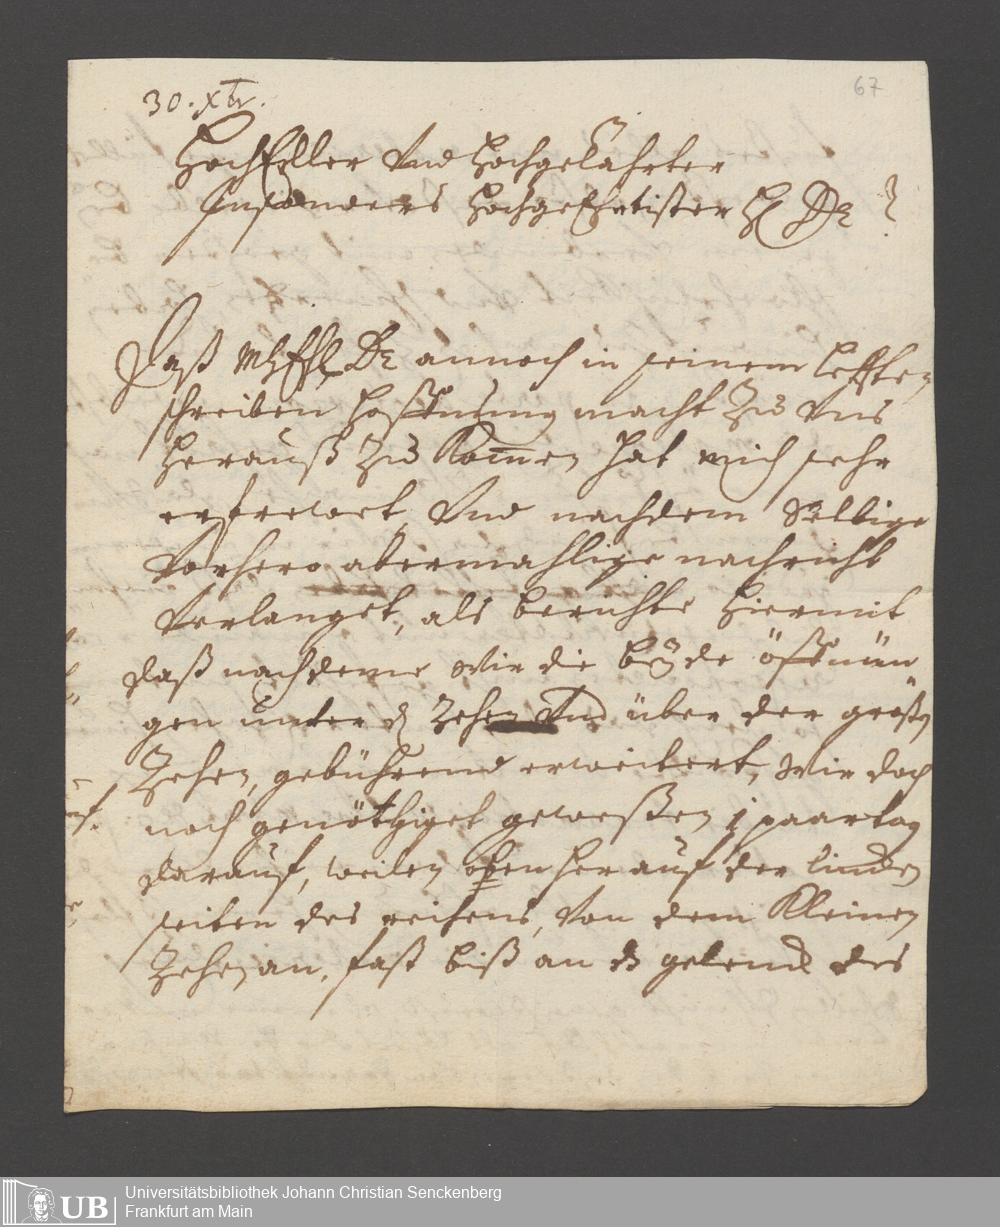 67
30. Xbr.
HochEdler Und Hochgelährter
Insonders HochgeEhrtister H Dr
Daß MhEhl Dr annoch in seinem letzten
schreiben hoffnung macht zu uns
herauß zu kommen hat mich sehr
erfrewet, Und nachdem Selbige
vorhero abermahlige nachricht
verlanget, als berichte hiermit
daß nachdeme wir die beyde öffnün„
gen unter d Zehen Und über der großn
Zehen, gebührend erweitert, wir doch
noch genöthiget geweßen 1 paar tag
darauf, weilen oben her auf der linden
seiten des reihens, von dem Kleinen
Zehen an, fast biß an d gelend des
Universitätsbibliothek Johann Christian Senckenberg
Frankfurt am Main
UB